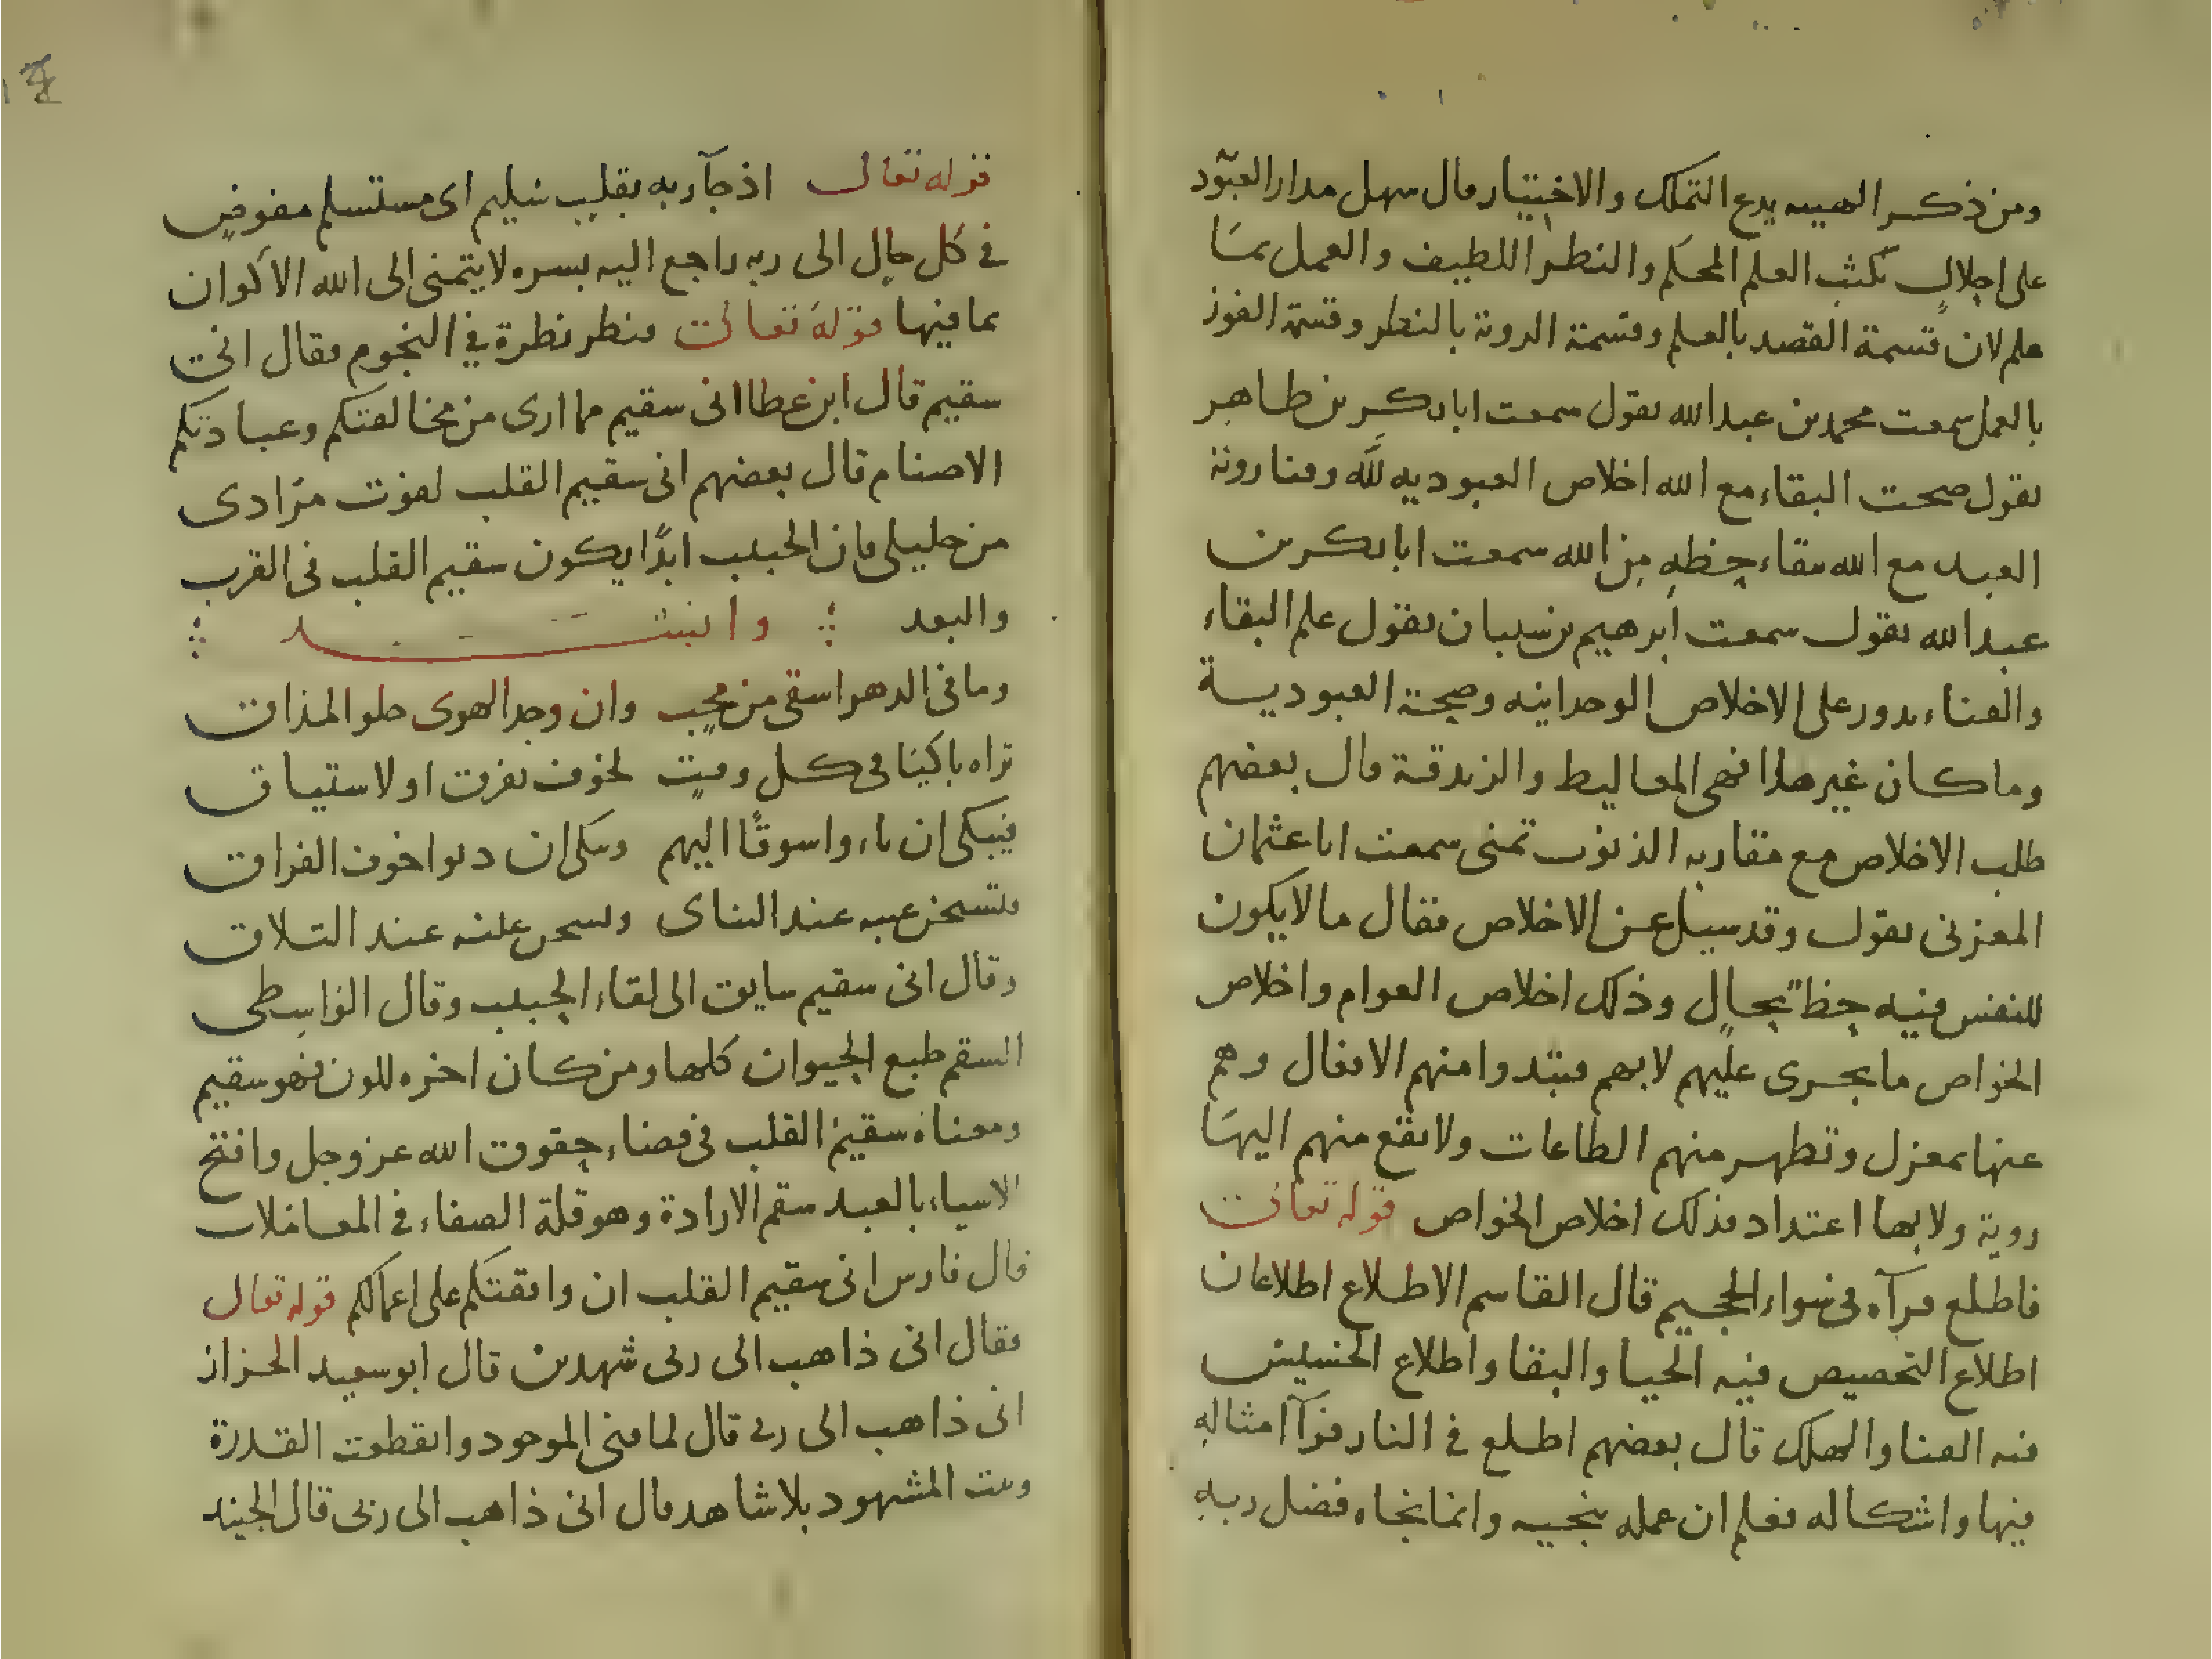 ومن ذكر الهيبه يدع التملك والاختيار قال سهل مدار العبود
على اجلال ثلث العلم المحكم والنظر اللطيف والعمل بما
علم لان قسمة القصد بالعلم وقسمة الروية بالنظر وقسمة الفوز
بالعمل سمعت محمد بن عبد الله يقول سمعت ابا بكر بن طاهر
يقول صحت البقاء مع الله اخلاص العبوديه لله وفنا روية
العبد مع الله بقاء حظه من الله سمعت ابا بكر بن
عبد الله يقول سمعت ابرهيم بن شيبان يقول علم البقاء
والفناء يدور على الاخلاص الوحدانيه وصحة العبودية
وما كان غير هذا فهى المغاليط والزندقة قال بعضهم
طلب الاخلاص مع مقاربه الذنوب تمنى سمعت ابا عثمان
المغزنى يقول وقد سيل عن الاخلاص فقال ما لا يكون
للنفس فيه حظ بحال وذلك اخلاص العوام واخلاص
الخواص ما يجرى عليهم لا بهم فتبدوا منهم الافعال وهم
عنها بمعزل وتظهر منهم الطاعات ولا يقع منهم اليها
روية ولا بها اعتداد فذلك اخلاص الخواص قوله تعالى
فاطلع فرآه فى سواء الجحيم قال القاسم الاطلاع اطلاعان
اطلاع التخصيص فيه الحيا والبقا واطلاع
فيه الفنا والهلك قال بعضهم اطلع في النار فرآ امثاله
فيها واشكاله فعلم ان عمله ينجيه وانما نجاه فضل ربه
قوله تعالى اذ جآ ربه بقلب سليم اى مستسلم مفوض
في كل حال الى ربه راجع اليه بسره لا يتمنى الى الله الاكوان
بما فيها قوله تعالى فنظر نظرة في النجوم فقال انى
سقيم قال ابن عطا انى سقيم مما ارى من مخالفتكم وعبادتكم
الاصنام قال بعضهم انى سقيم القلب لفوت مرادى
من خليلى فان الحبيب ابدًا يكون سقيم القلب فى القرب
والبعد وانشد
وما فى الدهر اسقى من محب وان وجد الهوى حلو المذاق
تراه باكيًا فى كل وقت لخوف تفرق او لاستياق
فيبكى ان ناء واسوقًا اليهم وسكى ان دنوا خوف الفراق
فتسخن عينه عند التناى وتسحن عينه عند التلاق
وقال انى سقيم سايق الى لقاء الحبيب وقال الواسطى
السقم طبع الحيوان كلها ومن كان اخره للون فهو سقيم
ومعناه سقيم القلب فى قضاء حقوق الله عز وجل وافتح
الاسياء بالعبد سقم الارادة وهو قلة الصفاء في المعاملات
قال فارس انى سقيم القلب ان وافقتكم على اعمالكم قوله تعالى
فقال انى ذاهب الى ربى شهدين قال ابو سعيد الخزاز
انى ذاهب الى ربى قال لما فنى الموجود وانقطعت القدرة
المشهود بلا شاهد قال انى ذاهب الى ربى قال الجنيد